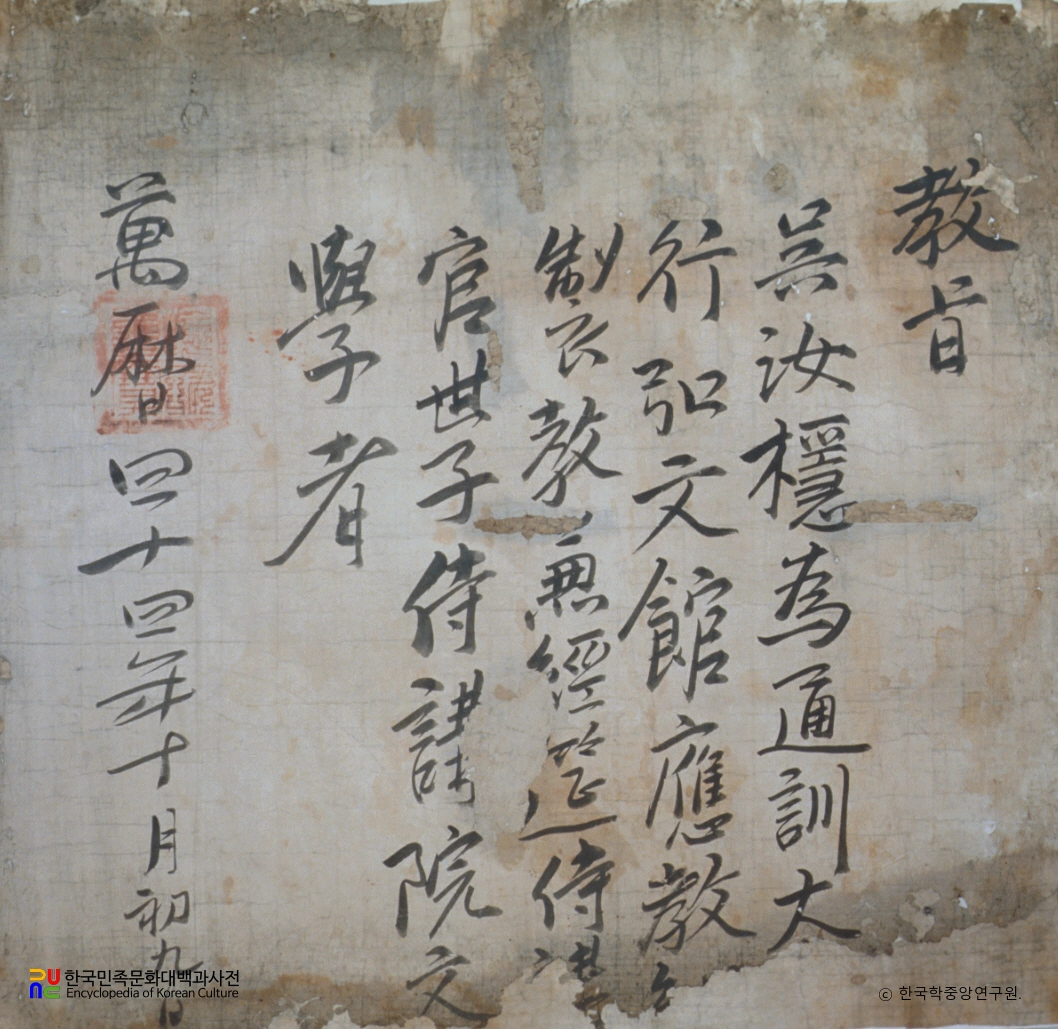 教旨
吳汝檼為通訓大
行弘文館應教
製教兼經筵侍講
官世子侍講院文
學者
萬曆四十四年十月初九日
한국민족문화대백과사전
Encyclopedia of Korean Culture
ⓒ 한국학중앙연구원.